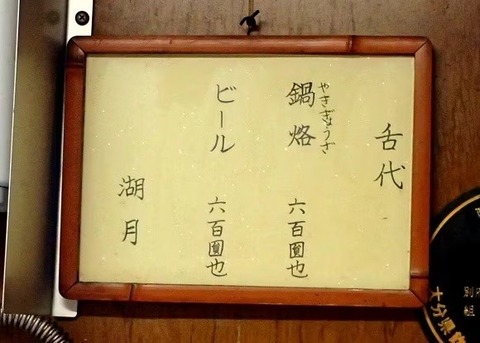 舌代
やきぎょうざ
鍋烙 六百圓也
ビール 六百圓也
湖月
大分県
別府
組